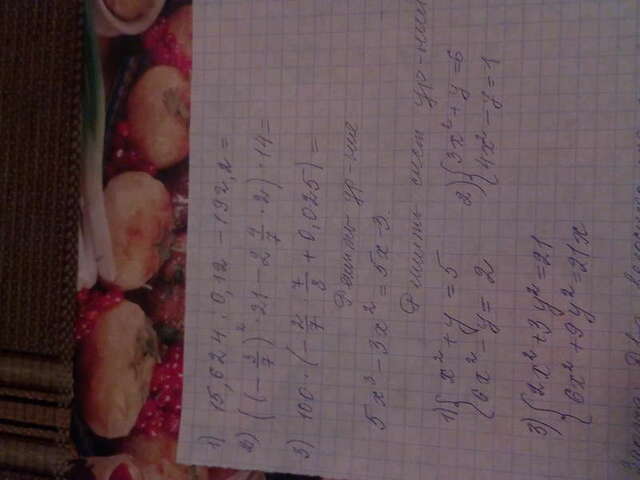 1) 15,624 : 0,12 - 132,2 =
2) ((-2/7)² · 21 - 2 4/7 · 2) · 14 =
3) 100 · (-2/7 · 7/8 + 0,025) =
Решить ур-ние
5x³ - 3x² = 5x - 3
Решить сист ур-ний
1) { x² + y = 5
{ 6x² - y = 2
2) { 3x² + y = 6
{ 4x² - y = 1
3) { 2x² + 3y² = 21
{ 6x² + 9y² = 21x